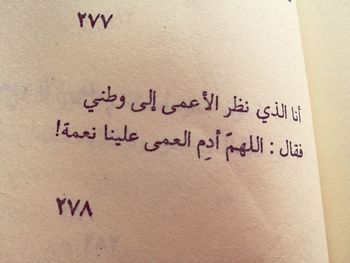 ٢٧٧
أنا الذي نظر الأعمى إلى وطني
فقال : اللهمّ أدِم العمى علينا نعمة!
٢٧٨